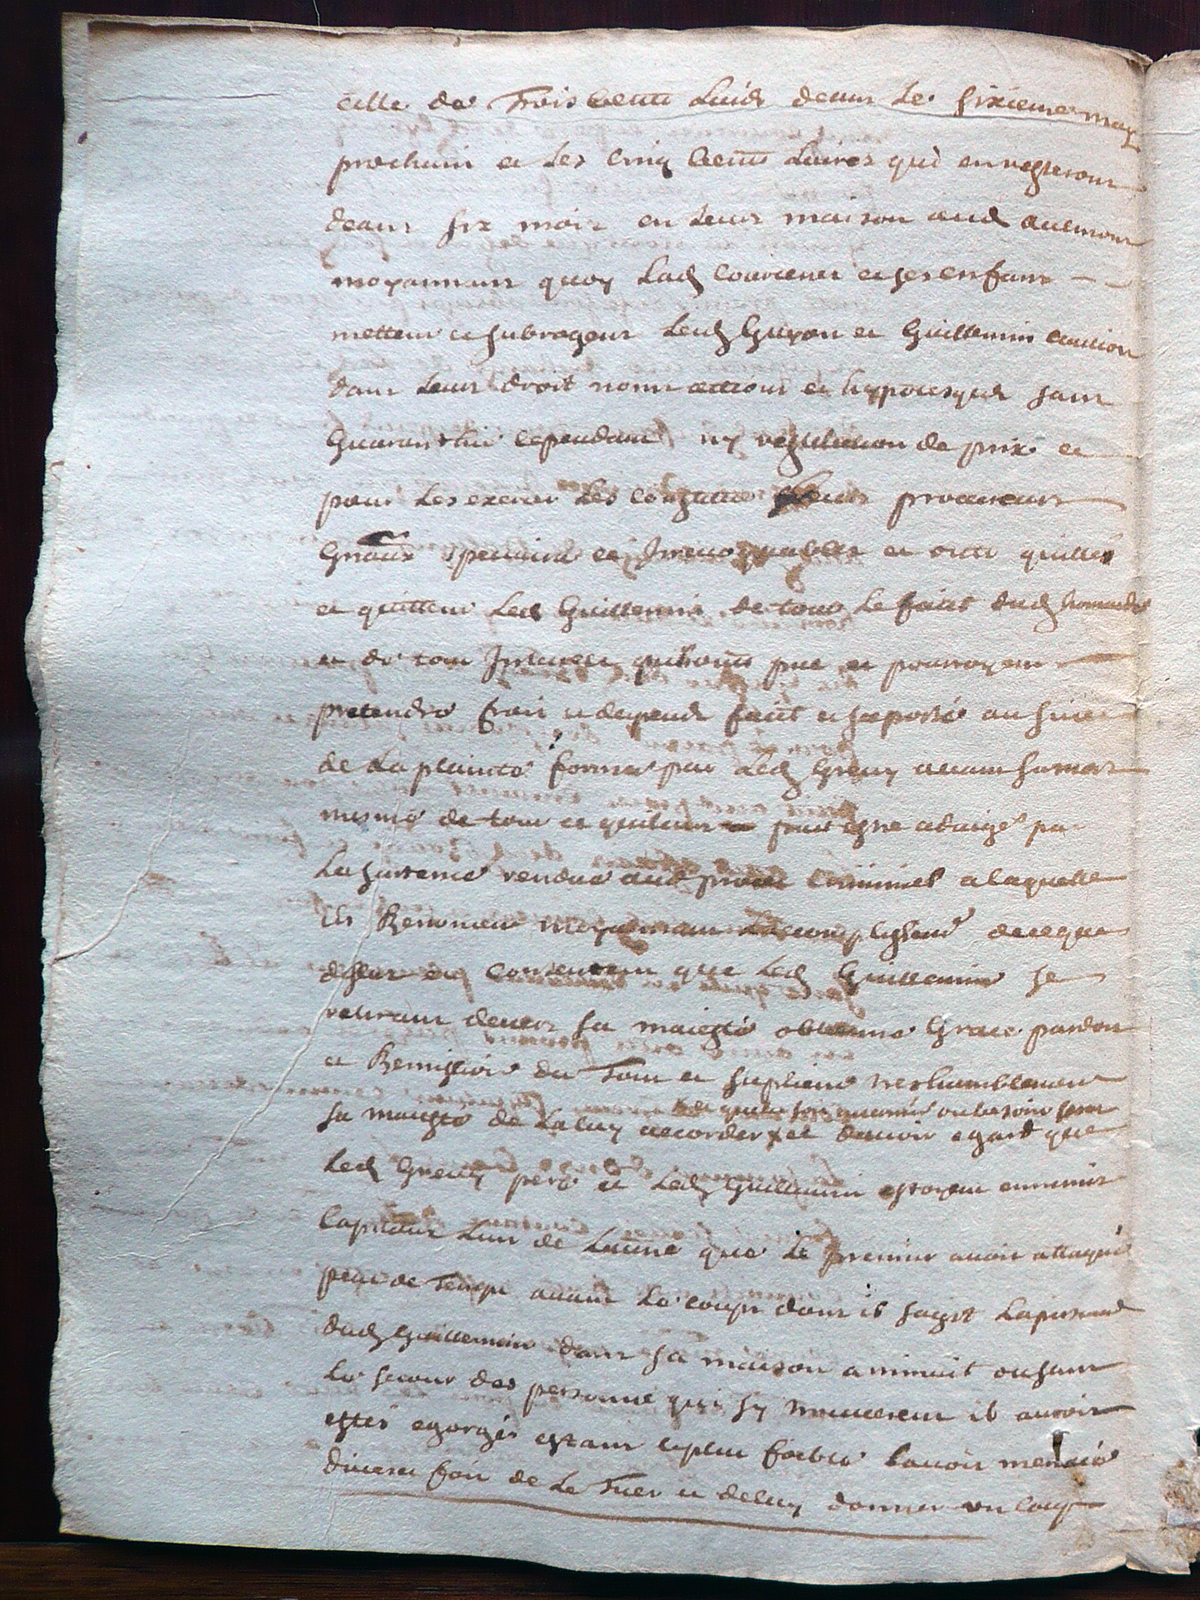 celle de Trois Cents Luid deans le sixieme may
prochain et les cinq Cents Livres qui en resteront
deans six mois en leur maison aud
moyennant quoy Lad et ses enfans
mettent et subrogent Led Guyon et Guillemin caution
dans leur droit noms actions et hypotesque sans
Guarenthie cependant ny restitution de prix et
pour les exercer les constitue leurs procureurs
Gnaux speciaux et Irrevoquables et ont quittés
et quittent Led Guillemin de tout le fait dud homicide
et de tout Interest quils ont pue et pourroyent
pretendre frais et depends fait et suporté au suiet
de La plainte formé par Led Greuy
mesme de tout ce qui leur peut estre adiugé par
La sentence rendue aud proces Criminel a laquelle
ils Renoncent moyennant Lacomplissemt de ce que
dessus et consentent que Led Guillemin se
retirant devers sa maiesté obtienne Grace pardon
et Remission du Tout et suplient treshumblement
sa maiesté de La luy accorder et davoir egard que
Led Greuy pere et Led Guillemin estoyent ennemis
Capitaux Lun de Lautre que le premier avoit attaqué
peu de Temps avant le coup dont il sagit La personne
dud Guillemin dans sa maison a minuit ou sans
le secour des personne qui sy trouverent il auroit
estés egorgés estant le plus foible lavoir menacé
diverses fois de le Tuer et de luy donner un coup